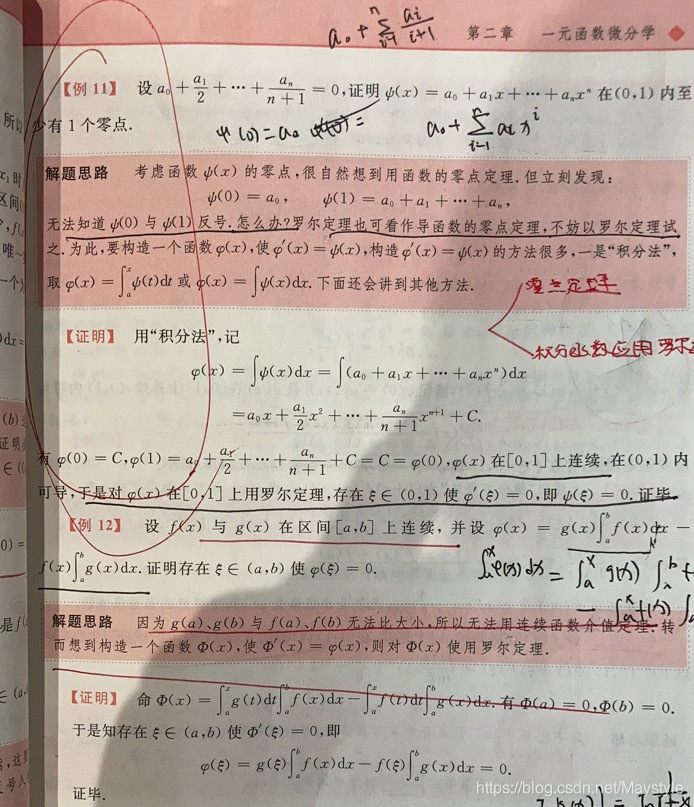 a₀ + Σ_{i=1}^{n} \frac{a_i}{i+1}
第二章 一元函数微分学 ◆
【例 11】 设 a₀ + \frac{a₁}{2} + ⋯ + \frac{aₙ}{n+1} = 0,证明 ψ(x) = a₀ + a₁x + ⋯ + aₙxⁿ 在(0,1) 内至
少有 1 个零点.
ψ(0) = a₀
a₀ + Σ_{i=1}^{n} a_i x^i
解题思路 考虑函数 ψ(x) 的零点,很自然想到用函数的零点定理.但立刻发现:
ψ(0) = a₀, ψ(1) = a₀ + a₁ + ⋯ + aₙ,
无法知道 ψ(0) 与 ψ(1) 反号.怎么办?罗尔定理也可看作导函数的零点定理,不妨以罗尔定理试
之.为此,要构造一个函数 φ(x),使 φ′(x) = ψ(x),构造 φ′(x) = ψ(x) 的方法很多,一是“积分法”,
取 φ(x) = ∫ₐˣ ψ(t)dt 或 φ(x) = ∫ψ(x)dx. 下面还会讲到其他方法.
零点定理
【证明】 用“积分法”,记
积分函数应用罗尔
φ(x) = ∫ψ(x)dx = ∫(a₀ + a₁x + ⋯ + aₙxⁿ)dx
= a₀x + \frac{a₁}{2}x² + ⋯ + \frac{aₙ}{n+1}xⁿ⁺¹ + C.
有 φ(0) = C, φ(1) = a₀ + \frac{a₁}{2} + ⋯ + \frac{aₙ}{n+1} + C = C = φ(0), φ(x) 在[0,1] 上连续,在(0,1) 内
可导,于是对 φ(x) 在[0,1] 上用罗尔定理,存在 ξ ∈ (0,1) 使 φ′(ξ) = 0,即 ψ(ξ) = 0. 证毕.
【例 12】 设 f(x) 与 g(x) 在区间[a,b] 上连续,并设 φ(x) = g(x)∫ₐᵇ f(x)dx −
f(x)∫ₐᵇ g(x)dx. 证明存在 ξ ∈ (a,b) 使 φ(ξ) = 0.
∫ₐˣ φ(x)dx = ∫ₐˣ g(x) ∫ₐᵇ f
− ∫ₐˣ f(x) ∫ₐ
解题思路 因为 g(a)、g(b) 与 f(a)、f(b) 无法比大小,所以无法用连续函数介值定理.转
而想到构造一个函数 Φ(x),使 Φ′(x) = φ(x),则对 Φ(x) 使用罗尔定理.
【证明】 命 Φ(x) = ∫ₐˣ g(t)dt∫ₐᵇ f(x)dx − ∫ₐˣ f(t)dt∫ₐᵇ g(x)dx. 有 Φ(a) = 0, Φ(b) = 0.
于是知存在 ξ ∈ (a,b) 使 Φ′(ξ) = 0,即
φ(ξ) = g(ξ)∫ₐᵇ f(x)dx − f(ξ)∫ₐᵇ g(x)dx = 0.
证毕.
https://blog.csdn.net/Maystyle